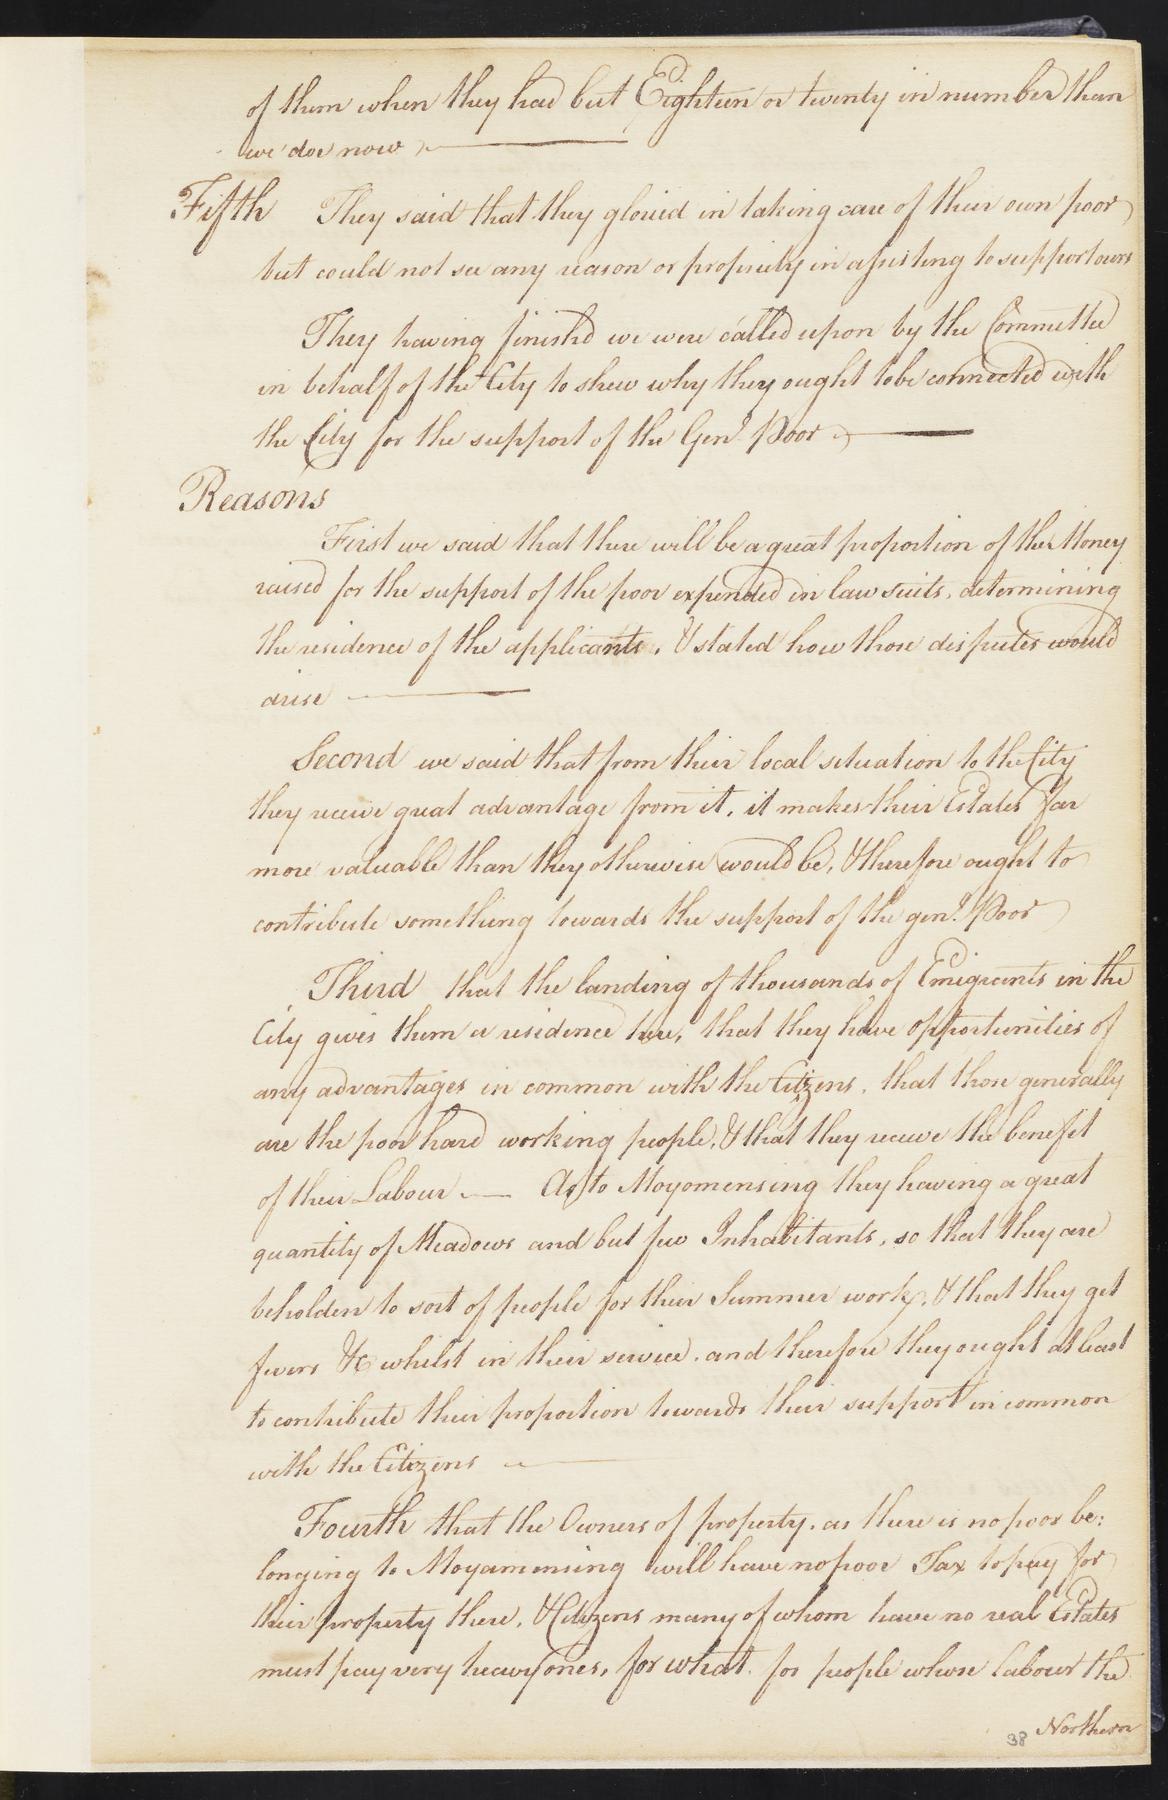 of them when they had but Eighteen or twenty in number than
we doe now
Fifth They said that they gloried in taking care of their own poor
but could not see any reason or propriety in assisting to support ours
They having finish'd we were called upon by the Committee
in behalf of the City to shew why they ought to be connected with
the City for the support of the Genl. Poor
Reasons
First we said that there will be a great proportion of the Money
raised for the support of the poor expended in law suits, determining
the residence of the applicants, & stated how those disputes would
arise
Second we said that from their local situation to the City
they receive great advantage from it, it makes their Estates far
more valuable than they otherwise would be, & therefore ought to
contribute something towards the support of the genl. Poor
Third that the landing of thousands of Emigrants in the
City gives them a residence here, that they have opportunities of
any advantages in common with the Citizens, that those generally
are the poor hard working people, & that they receive the benefit
of their Labour — As to Moyomensing they having a great
quantity of Meadows and but few Inhabitants, so that they are
beholden to sort of people for their Summer work, & that they get
fevers &c whilst in their service, and therefore they ought at least
to contribute their proportion towards their support in common
with the Citizens
Fourth that the Owners of property, as there is no poor be:
longing to Moyamensing will have no poor Tax to pay for
their property there, & Citizens many of whom have no real Estates
must pay very heavy ones, for what, for people whose labour the
Northern
38